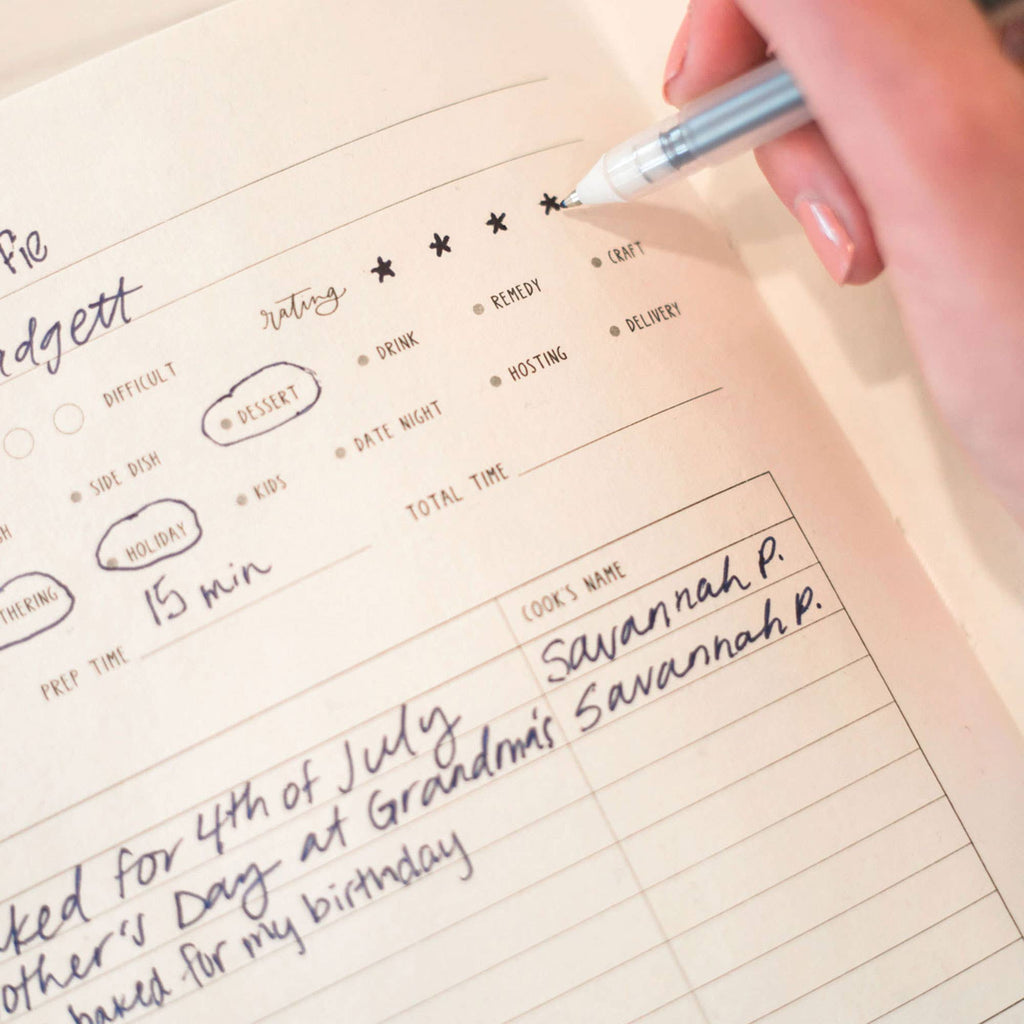 fie
adgett
rating * * * *
DIFFICULT DESSERT DRINK REMEDY CRAFT
SIDE DISH KIDS DATE NIGHT HOSTING DELIVERY
HOLIDAY
THERING
PREP TIME 15 min TOTAL TIME
COOK'S NAME
ked for 4th of July Savannah P.
other's Day at Grandma's Savannah P.
baked for my birthday